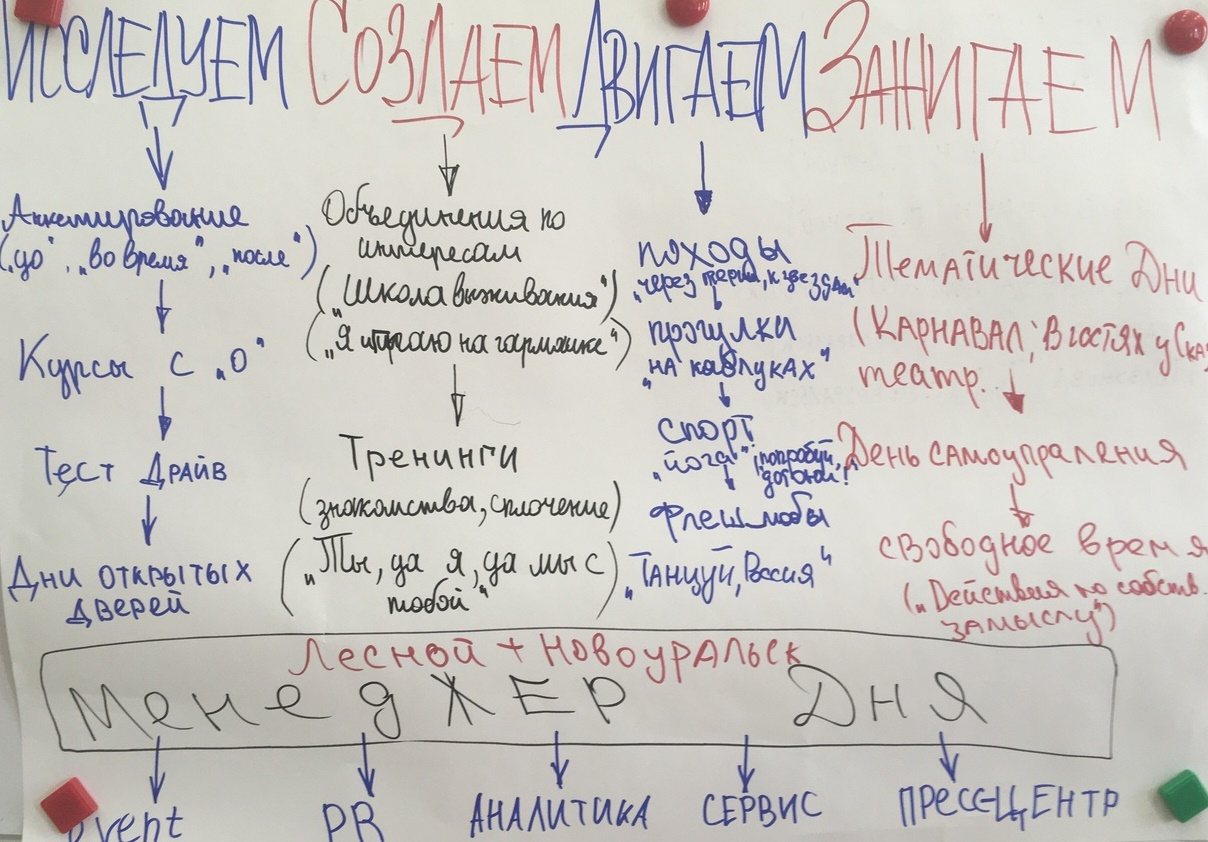 ИССЛЕДУЕМ СОЗДАЕМ ДВИГАЕМ ЗАЖИГАЕМ
Анкетирование
(„до“, „во время“, „после“)
Курсы с „0“
Тест Драйв
Дни открытых
дверей
Объединения по
интересам
(„Школа выживания“)
(„Я играю на гармошке“)
Тренинги
(знакомства, сплочение)
(„Ты, да я, да мы с
тобой“)
походы
„через тернии, к звездам“
прогулки
„на каблуках“
спорт
„йога“ „попробуй,
догони!“
Флешмобы
„Танцуй, Россия“
Тематические Дни
(Карнавал; В гостях у Ска
театр..
День самоупраления
свободное время
(„Действия по собств.
замыслу“)
Лесной + Новоуральск
Менеджер Дня
Event PR АНАЛИТИКА СЕРВИС ПРЕСС-ЦЕНТР